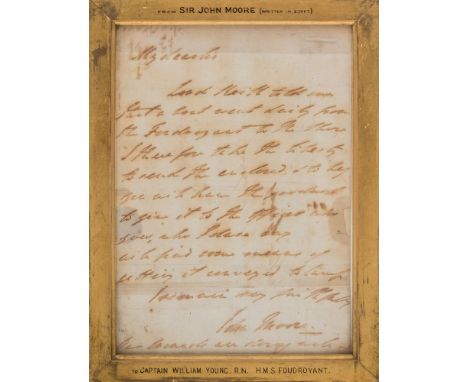 FROM SIR JOHN MOORE (WRITTEN IN EGYPT)
My dear Sir
Lord Keith told me
that a boat went daily from
the Foudroyant to the shore
I therefore take the liberty
to send the enclosed, & to beg
you will have the goodness
to give it to the officer who
goes, who I dare say
will find some means of
getting it conveyed to camp
I remain very faithfully
John Moore
TO CAPTAIN WILLIAM YOUNG, R.N. H.M.S. FOUDROYANT.